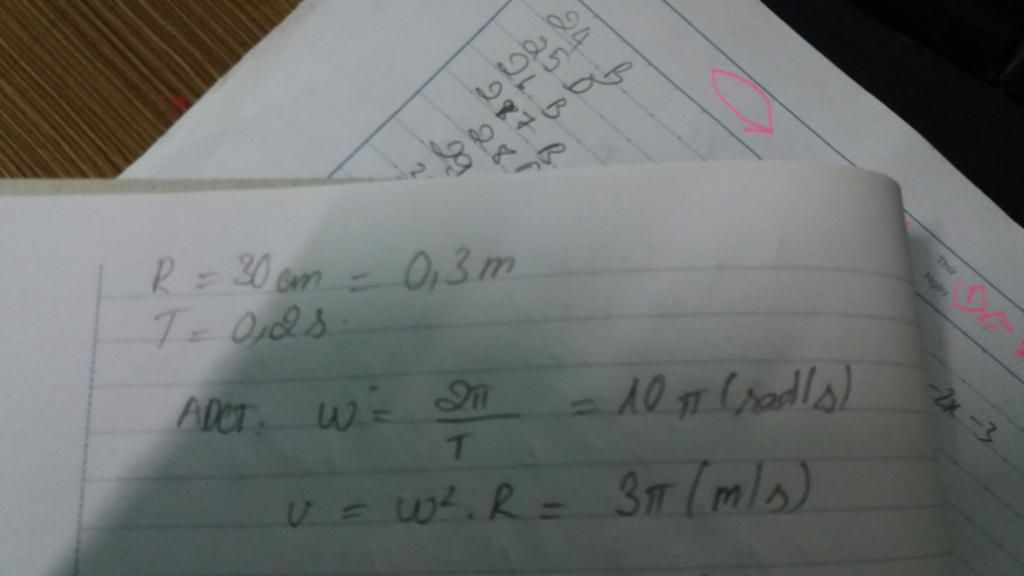 24
25 B
26 D
287 B
28 B
29
R = 30 cm = 0,3 m
T = 0,2 s.
ADCT: ω = 2π/T = 10 π (rad/s)
v = ω². R = 3π (m/s)
Thứ
Ngày
-2x -3